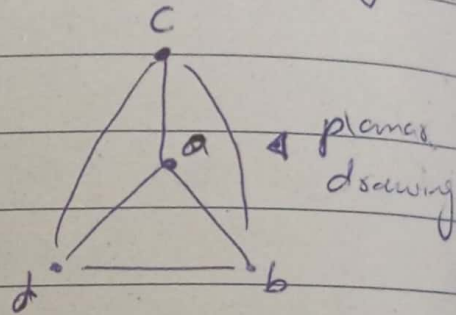 C
a
planar
drawing
d
b